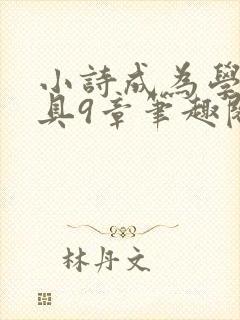 小詩成為學
具9章筆趣閱
林丹文